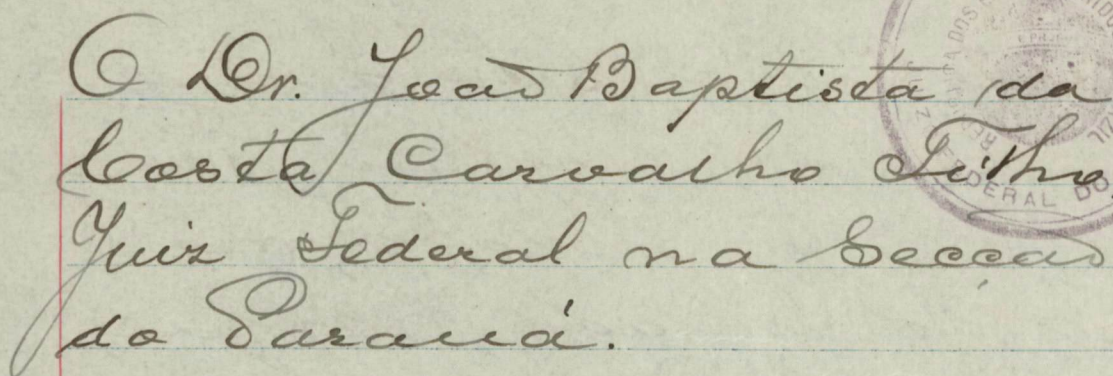 O Dr. João Baptista da
Costa Carvalho Filho,
Juiz Federal na Secção
do Paraná.